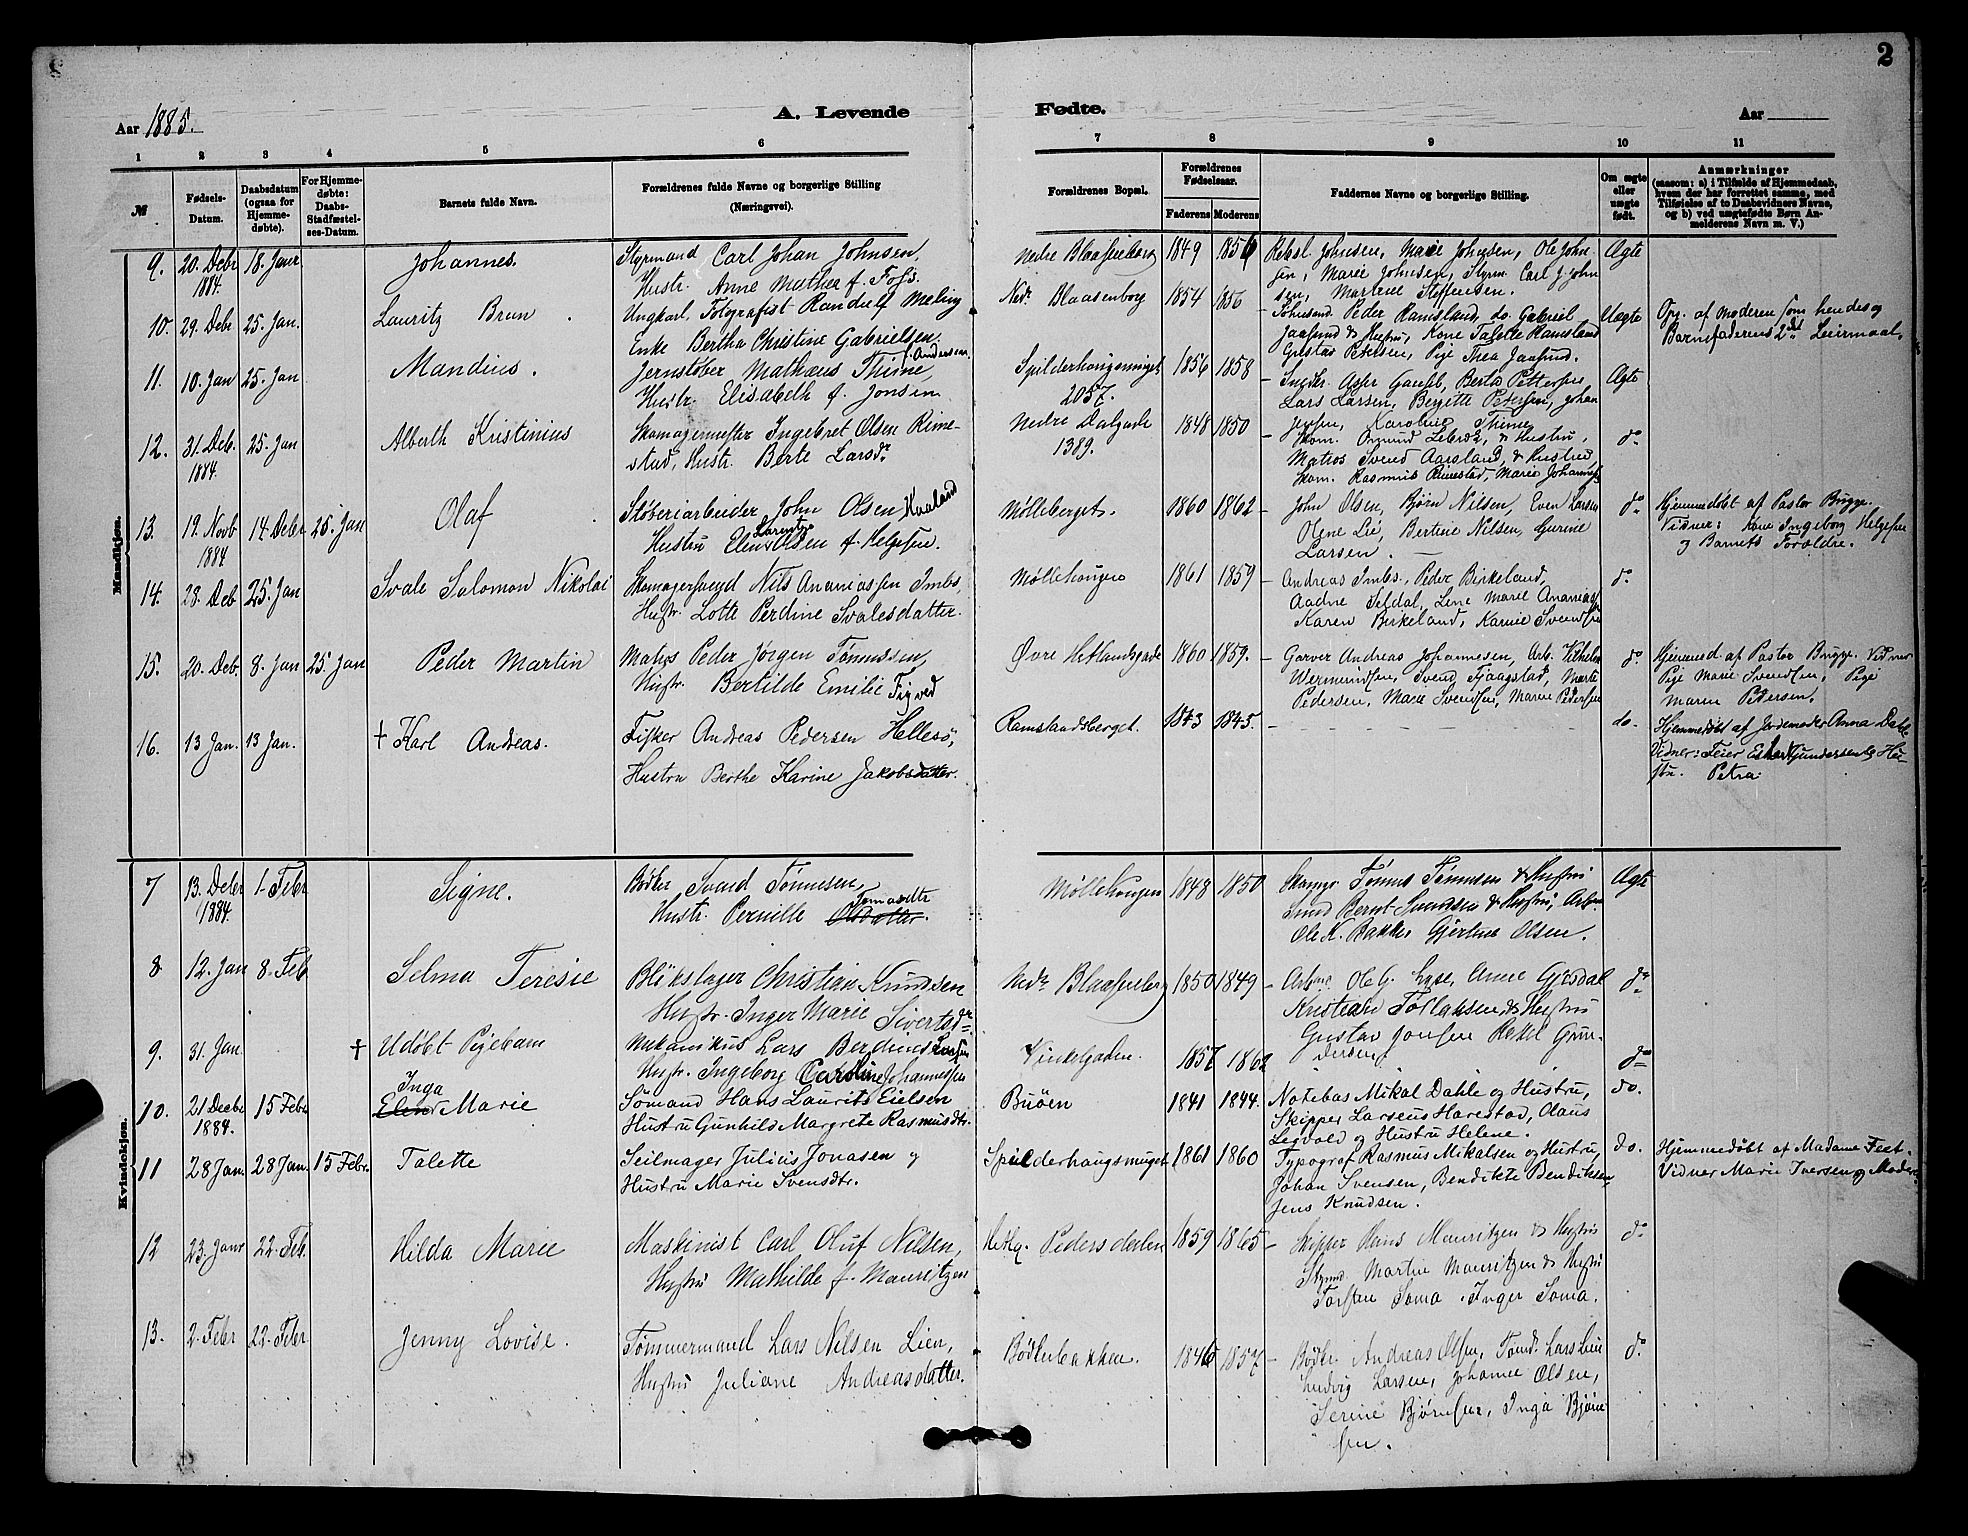 2
Aar 1885.
A. Levende
Fødte.
Aar
1 2 3 4 5 6 7 8 9 10 11
№
Fødsels-
Datum.
Daabsdatum
(ogsaa for
Hjemme-
døbte).
For Hjemme-
døbte:
Daabs-
Stadfæstel-
ses-Datum.
Barnets fulde Navn.
Forældrenes fulde Navne og borgerlige Stilling
(Næringsvei).
Forældrenes Bopæl.
Forældrenes
Fødselsaar.
Faderens Moderens
Faddernes Navne og borgerlige Stilling.
Om ægte
eller
uægte
født.
Anmærkninger
(saasom: a) i Tilfælde af Hjemmedaab,
hvem der har forrettet samme, med
Tilføielse af to Daabsvidners Navne,
og b) ved uægtefødte Børn An-
melderens Navn m. V.)
Mandkjøn.
9. 20. Debr 18. Janr Johannes. Styrmand Carl Johan Johnsen,
1884. Hustr. Anne Mathea f. Foss.
Nedre 1849 1856 Johnsen, Marie Johnsen, Ole John
sen, Marie Johnsen, Styrm. Carl J. John
sen, Marlene Steffensen.
Ægte
10. 29. Debr 25. Jan. Lauritz Brun. Ungkarl, Fotografist Randulf Meling
Enke Bertha Christine Gabrielsen.
Ned. Blaasenborg 1854 1856 Peder Ramsland, do. Gabriel
Jaasund & Hustru, Kone Talette Ramsland
Gustav Petersen, Pige Thea Jaasund.
Uægte
Opg. af Moderen som hendes og
Barnefaderens 2det Leiermaal.
11. 10. Jan 25. Jan Mandius. Jernstøber Mathæus Thime, Andersen
Hustr. Elisabeth f. Jonsen
Spilderhaugsmuget 1856 1858
2057.
Lars Larsen, Bergitte Petersen, Johan
Jensen, Karoline Thime
Ægte
12. 31. Deb. 25. Jan Alberth Kristinius Skomagermester Ingebret Olsen Rime-
1884. stad, Hustr. Berte Larsdr
Nedre Dalgade 1848 1850
1389.
Matros Svend Aarsland, & Hustru
Skom. Rasmus Rimestad, Marie Johannes
do
13. 19. Novb 14 Debr 25. Jan Olaf Støberiarbeider John Olsen Kaaland
1884 Hustru Eline Larentze Olsen f. Helgesen.
Mølleberget. 1860 1862 John Olsen, Bjørn Nilsen, Even Larsen
Olene Lie, Bertine Nilsen, Gurine
Larsen.
do
Hjemmedøbt af Pastor Brygge.
Vidner: Kone Ingeborg Helgesen
og Barnets Forældre.
14. 28. Deb 25. Jan Svale Salomon Nikolai Skomagersvend Nils Ananiassen Imbs,
Hustr. Lotte Perdine Svalesdatter.
Møllehougen 1861 1859 Andreas Imbs, Peder Birkeland,
Aadne Seldal, Line Marie Ananiass
Karen Birkeland, Karine Svendsen
do
15. 20. Deb. 8. Jan 25 Jan Peder Martin Matros Peder Jørgen Tønnessen,
Hustr. Bertilde Emilie Figved
Øvre Hetlandsgade 1860 1859. Garver Andreas Johannesen, Arb. Vilhelm
Wermundsen, Svend Tjaagstad, Marte
Pedersen, Marie Svendsen, Maren Pedersen
do
Hjemmed. af Pastor Brygge. Vidner
Pige Marie Svendsen, Pige
Maren Petersen.
16. 13 Jan. 13 Jan. † Karl Andreas. Fisker Andreas Pedersen Hellesø,
Hustru Berthe Karine Jakobsdatter.
Ramslandsberget. 1843 1845.
do.
Hjemmedøbt af Jordemoder Anna Dahle
Vidner: Feier Gundersen & Hu-
stru Petra
Kvindekjøn.
7 13. Debr 1. Febr Signe. Bødker Svend Tønnesen,
1884. Hustr. Pernille Olsdatter. Tomasdtr
Møllehougen 1848 1850 Skomgr. Tønnes Tønnesen & Hustru
Smed Bernt Svendsen & Hustru, Arbm.
Ole K. Bakke, Gjertine Olsen.
Ægte
8. 12. Jan 8. Feb Selma Teresie Blikslager Christian Knudsen
Hustr. Inger Marie Sivertsdr
1850 1849 Arbm. Ole G. Lyse, Anne Gjesdal
Kristian Torlaksen, & Hustru
Gustav Jonsen Gun-
dersen
do
9. 31. Jan † Udøbt Pigebarn Mekanikus Lars Berdines Larsen
Hustr. Ingeborg Caroline Johannessen
Vinkelgaden. 1857 1862
do
10. 21 Decbr 15 Febr Inga Elen Marie Sømand Hans Laurits Eielsen
1884. Hustru Gunhild Margrete Rasmusdtr.
Buøen 1841 1844. Notebas Mikal Dahle og Hustru,
Skipper Larseus Harestad, Claus
Legvold og Hustru Helene.
do.
11 28 Jan. 28 Jan. 15 Febr. Talette Seilmager Julius Jonasen og
Hustru Marie Svensdtr.
Spilderhaugsmuget 1861 1860 Typograf Rasmus Mikalsen og Hustru,
Johan Svensen, Bendikte Bendiksen
Jens Knudsen.
do.
Hjemmedøbt af Madame Feet.
Vidner Marie Iversen og Moder
12 23. Janr 22. Feb. Hilda Marie Maskinist Carl Oluf Nilsen,
Hustru Mathilde f. Mauritzen
Hetlg. Pedersdalen 1859 1865 Skipper Hans Mauritzen & Hustru
Styrmd. Martin Mauritzen & Hustru
Torsten Soma, Inger Soma.
do
13. 2. Febr 22. Febr Jenny Lovise. Tømmermand Lars Nilsen Lien,
Hustru Juliane Andreasdatter.
Bødkerbakken. 1846 1857 Bødkr. Andreas Olsen, Tømd. Lars Lien
Ludvig Larsen, Johanne Olsen,
Serine Bjørnsen, Inga Bjørn
sen.
do